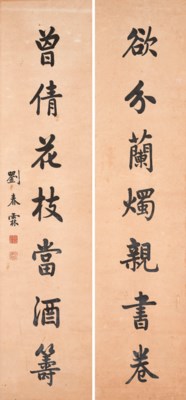 欲分蘭燭親書卷
曾倩花枝當酒籌
劉春霖